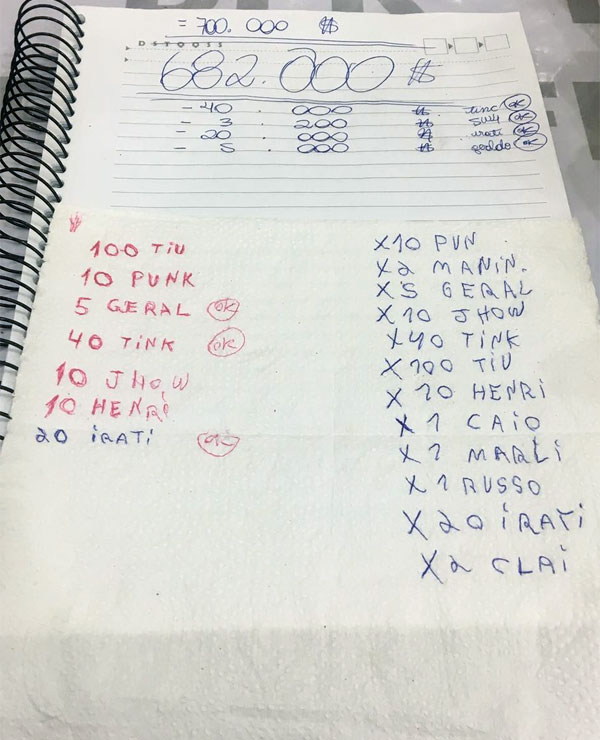 = 700.000 $
682.000 $
- 40.000 $ tinc OK
- 3.200 $ OK
- 20.000 $ irati OK
- 5.000 $ OK
100 TiU
10 PUNK
5 GERAL OK
40 TiNK OK
10 JHOW
10 HENRi
20 iRATi OK
X10 PUN
X2 MANiN.
X5 GERAL
X10 JHOW
X40 TiNK
X100 TiU
X 10 HENRi
X 1 CAiO
X 1 MARLi
X 1 RUSSO
X 20 iRATi
X2 CLAi